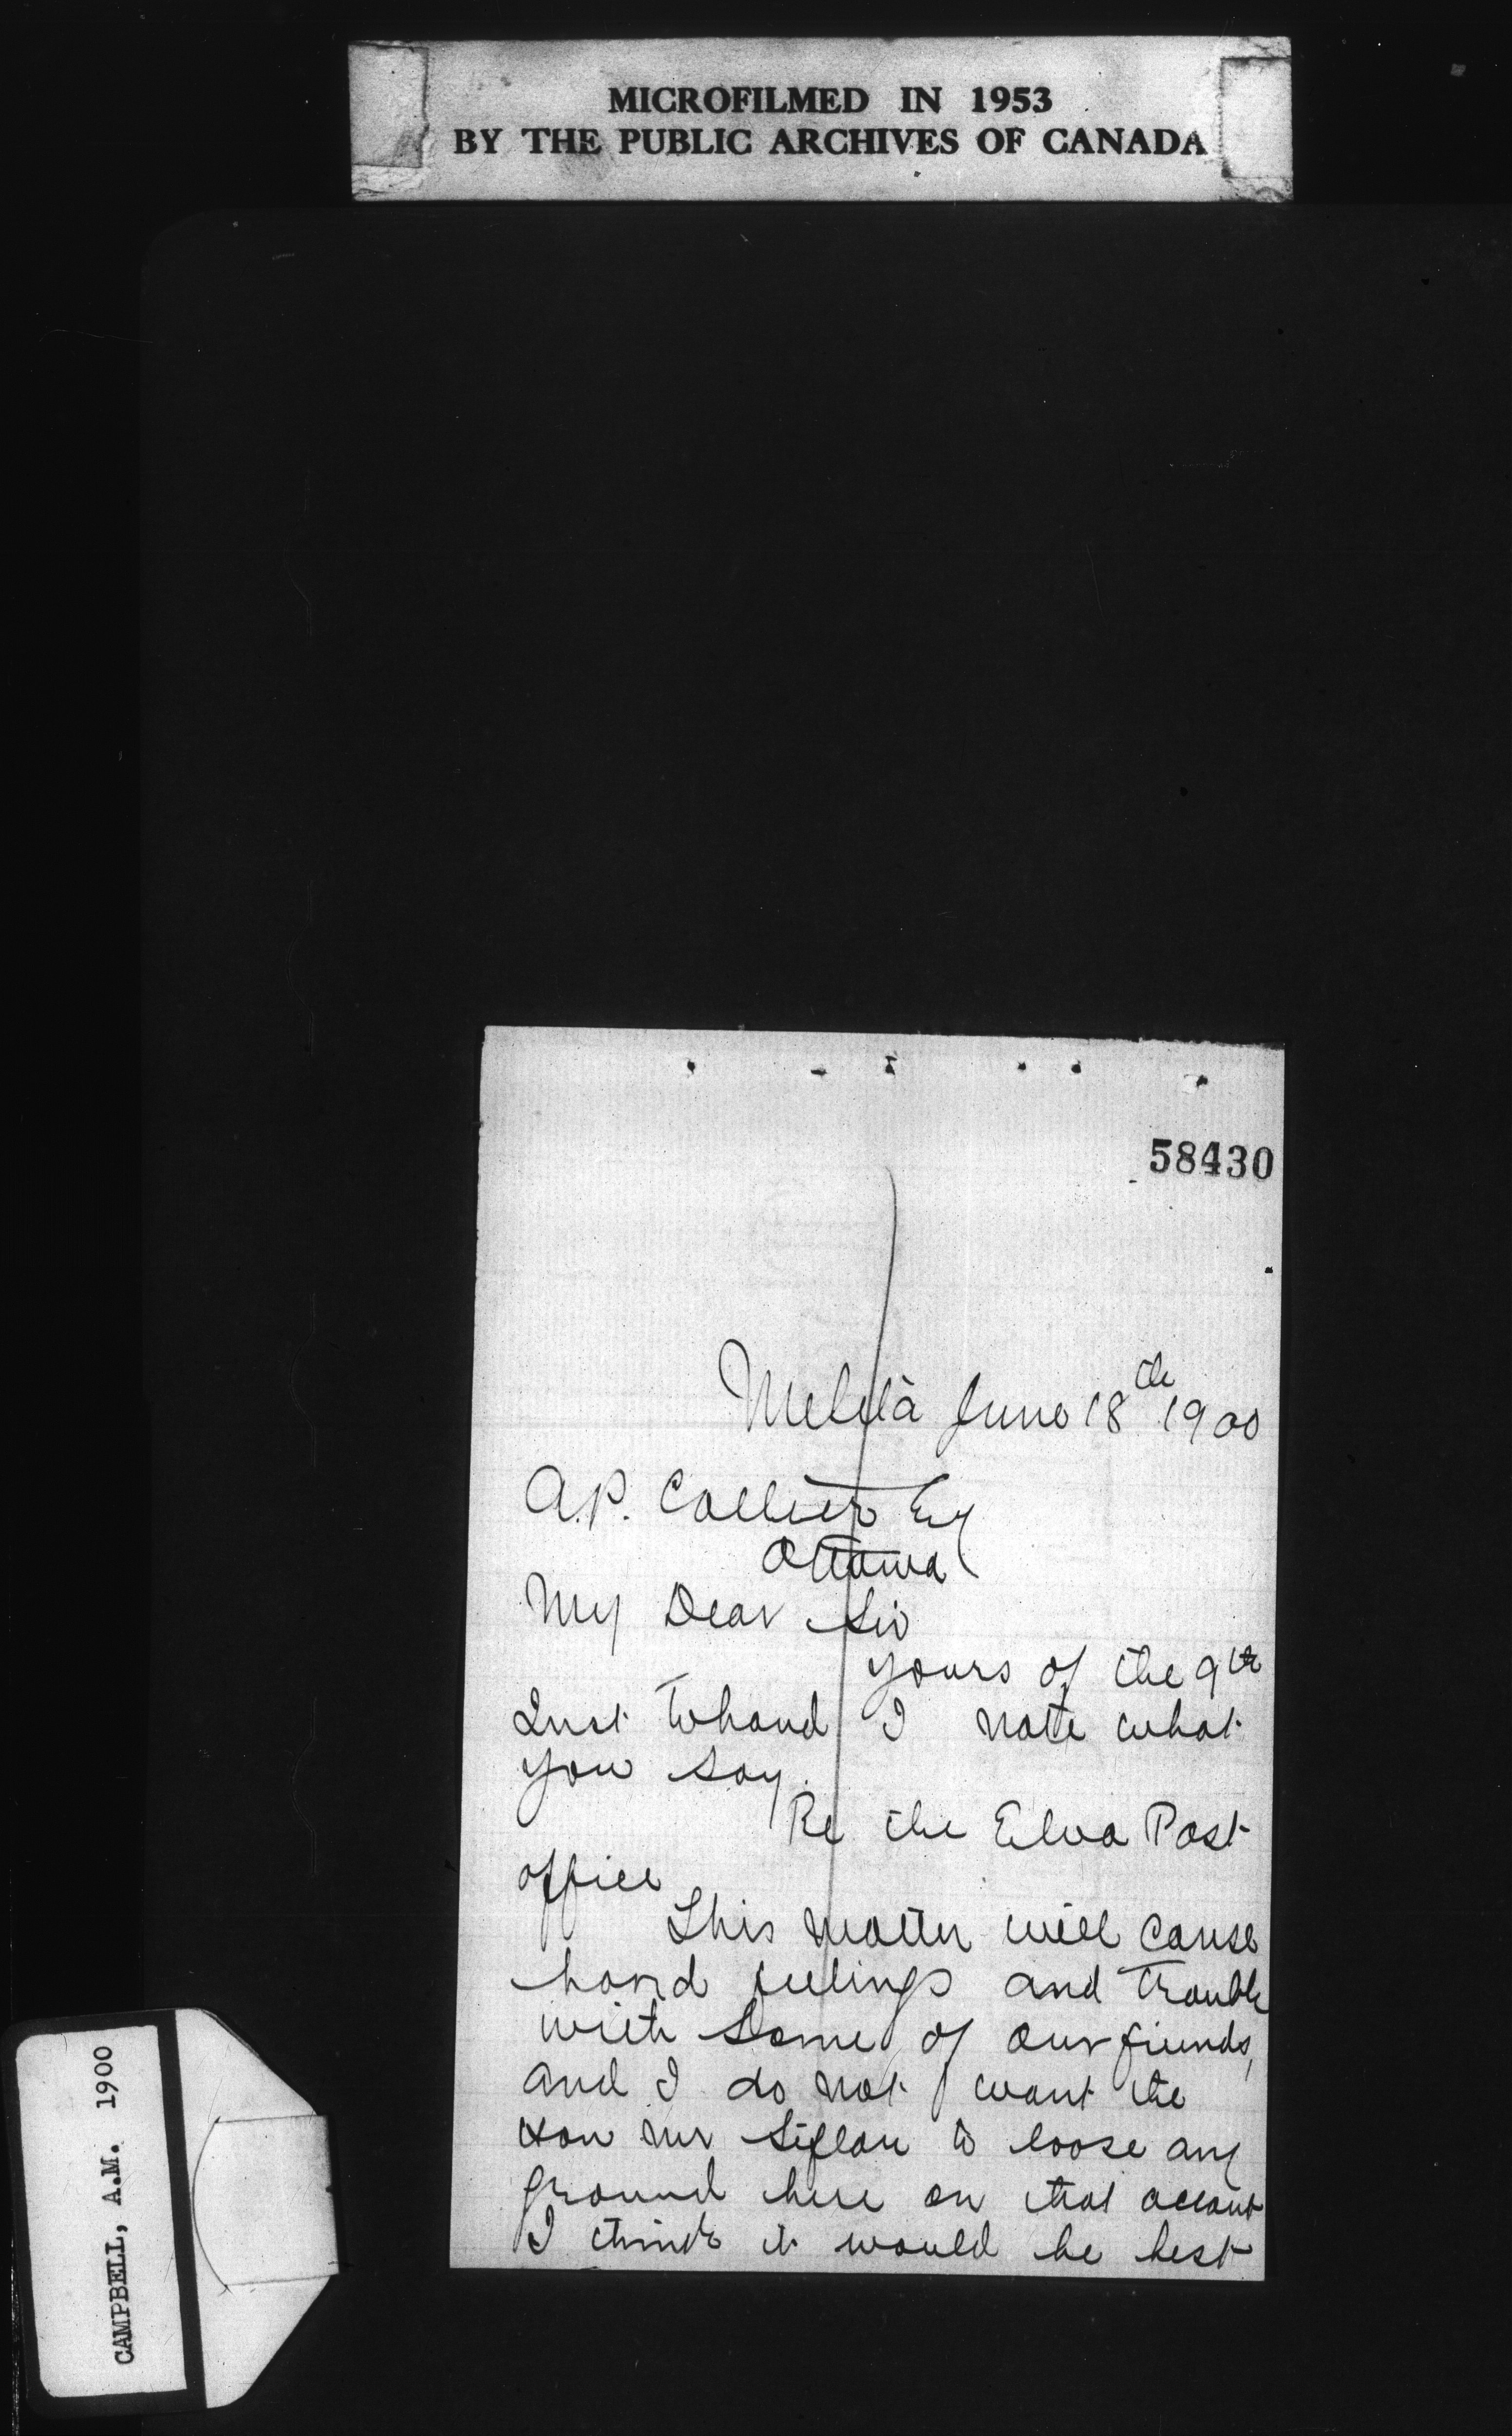 MICROFILMED IN 1953
BY THE PUBLIC ARCHIVES OF CANADA
58430
Melita June 18th 1900
A.P. Collier Esq
Ottawa
My Dear Sir
yours of the 9th
Inst to hand I note what
you say.
Re the Elva Post
office
This matter will cause
hard feelings and trouble
with some of our friends,
and I do not want the
Hon Mr Sifton to loose any
ground here on that account
I think it would be best
CAMPBELL, A.M. 1900